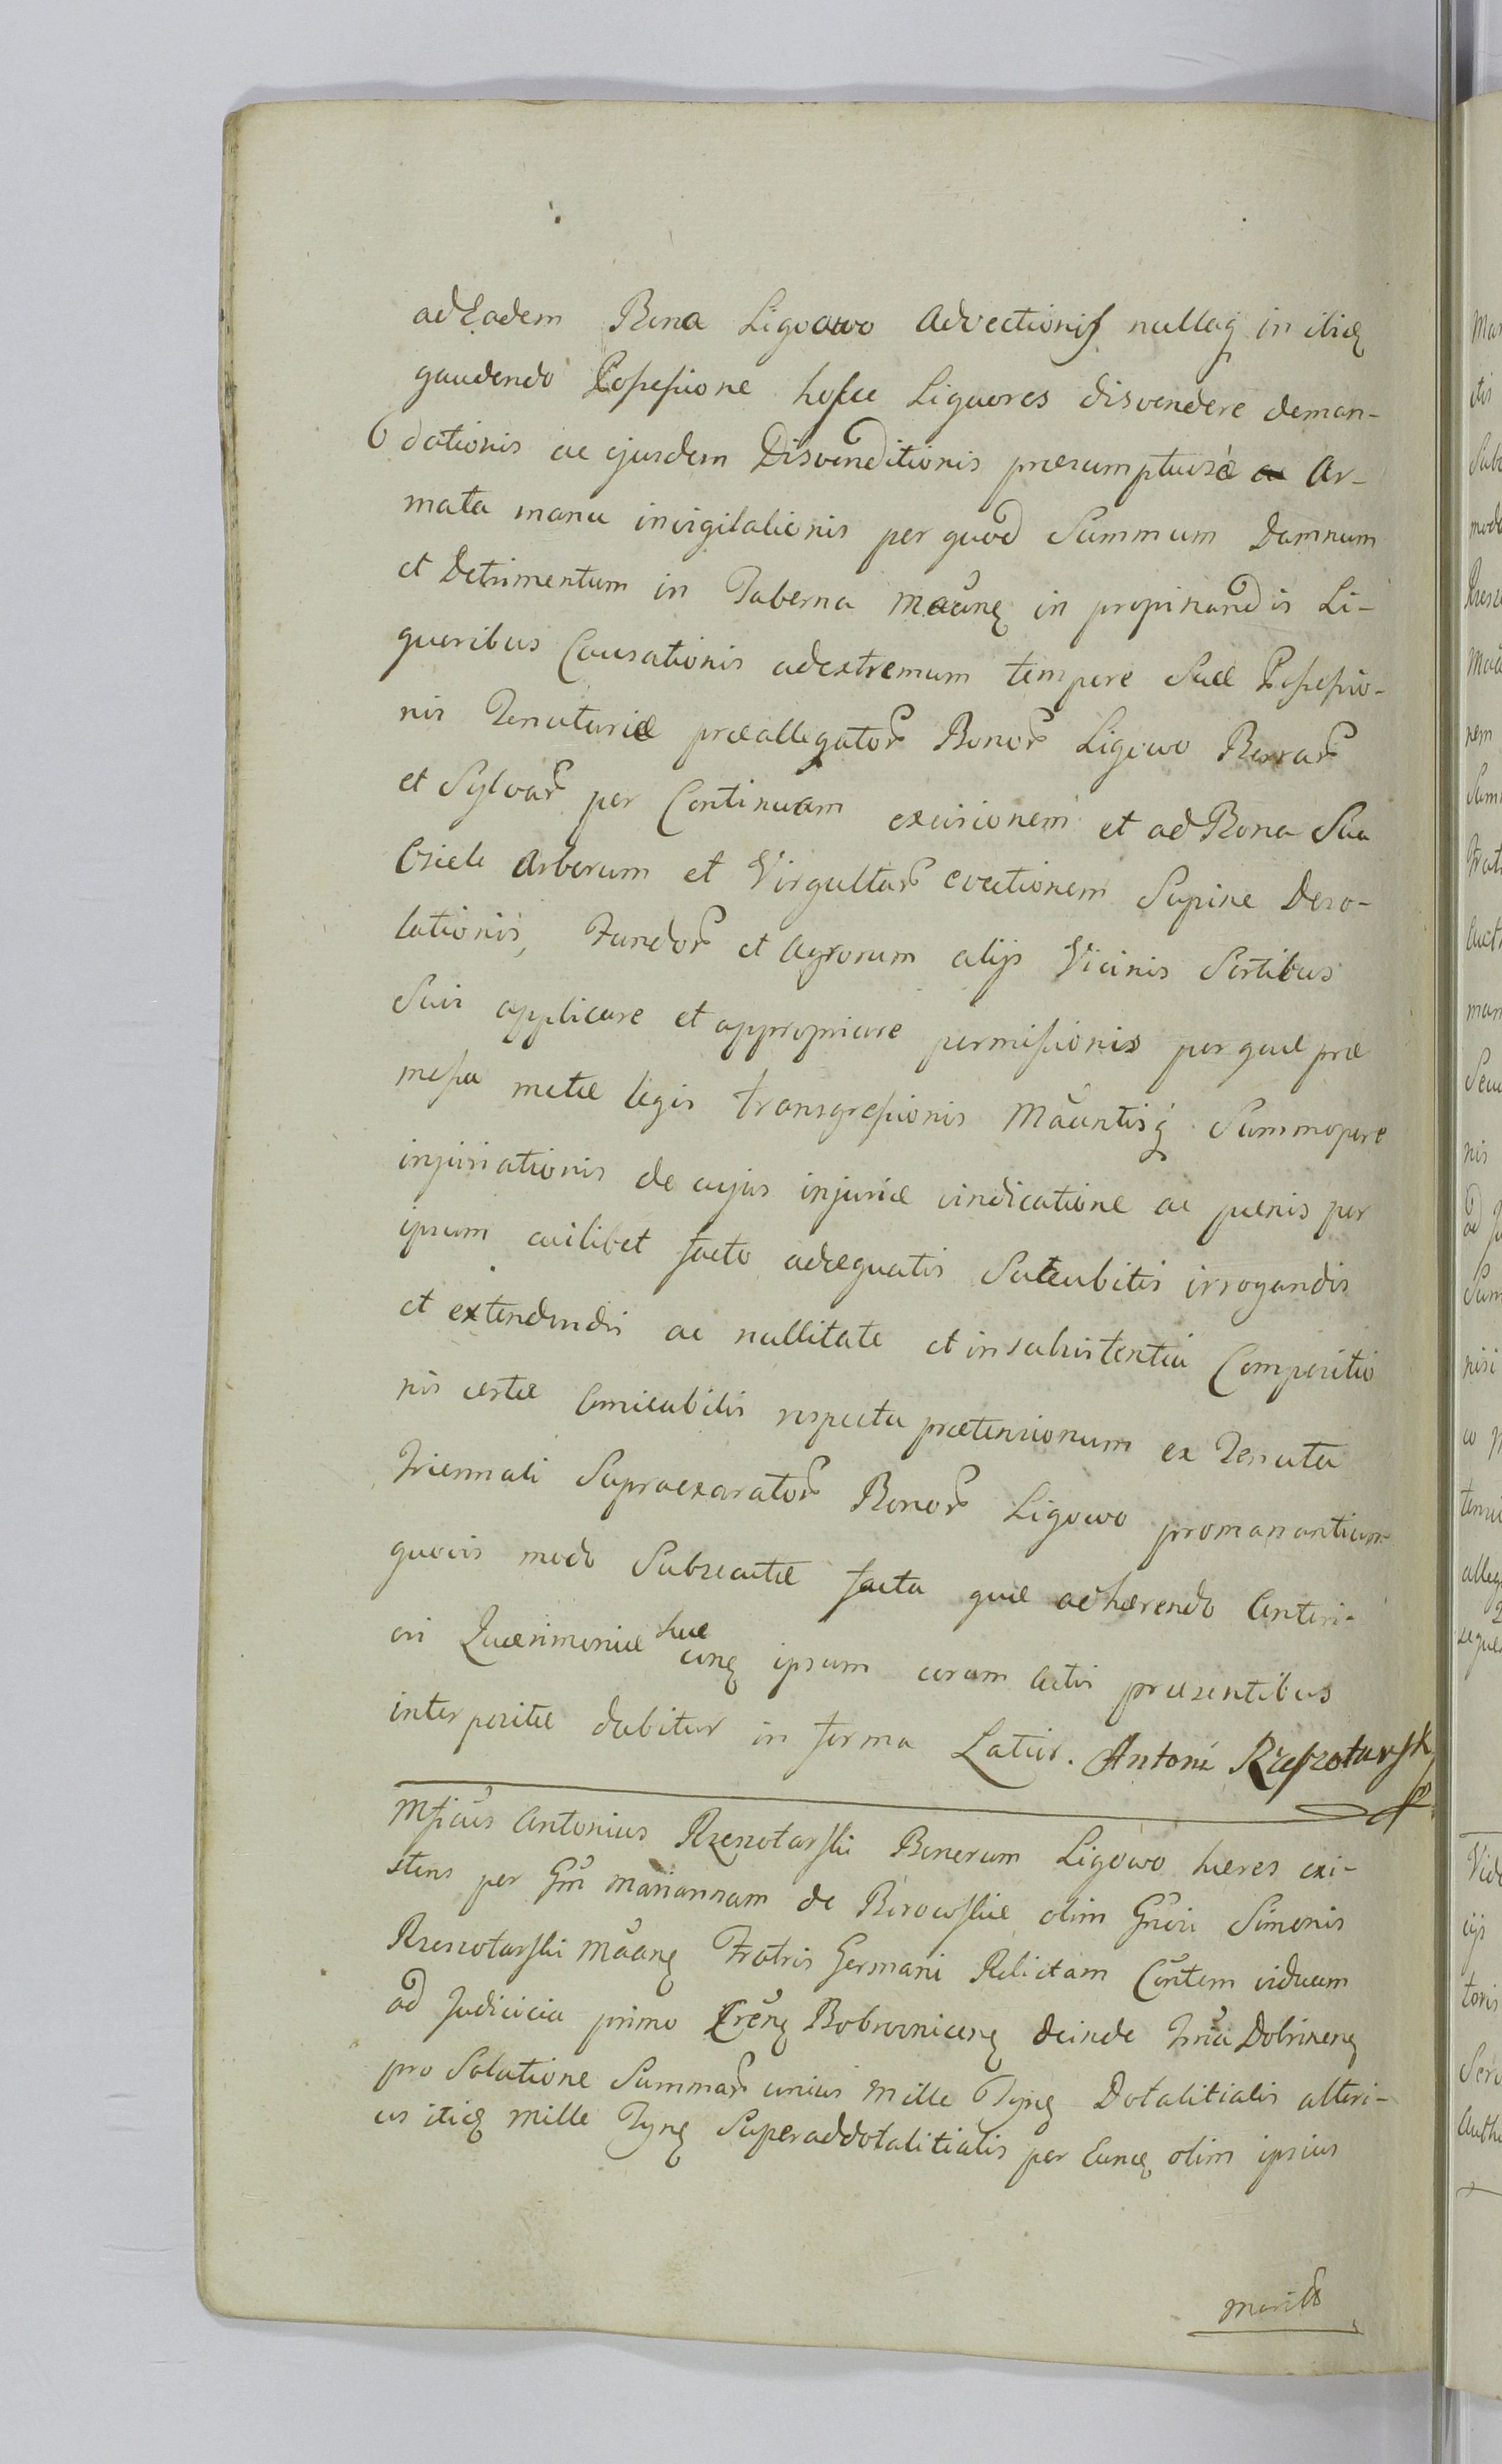 ad Eadem Bona Ligowo Advectionis nullaq in ibidē
gaudendo Possessione hosce Liquores disvendere deman-
dationis ac ejusdem Disvenditionis præsumptuosæ Ar-
mata manu invigilationis per quod Summum Damnum
et Detrimentum in Taberna Mācīnē in propinandis Li-
quoribus Causationis ad extremum tempore Suæ Possessio-
nis Tenutariæ præallegator Bonor Ligowo Borrar
et Sylvar per Continuam excisionem et ad Bona Sua
Osiek Arborum et Virgultar evectionem Supine Deso-
lationis, Fundor et Agrorum alijs Vicinis Sortibus
Suis applicare et appropriare permissionis per quæ præ
missa metæ legis transgressionis Mācāntisq Summopere
injuriationis de cujus injuriæ vindicatione ac pœnis per
ipsum cuilibet facto adæquatis Sateubitis irrogandis
et extendendis ac nullitate et insubsistentia Compositio
nis certæ Amicabilis respectu prætensionum ex Tenuta
Triennali Supraexarator Bonor Ligowo promanantium
quovis modo Subsecutæ facta quæ adhærendo Anteri-
ori Quærimoniæ huc ipsum coram Actis præsentibus
interpositæ dabitur in forma Latior. Antoni Rzeszotarsk
Mficūs Antonius Rzeszotarski Bonorum Ligowo hæres exi-
stens per Gm̄ Mariannam de Borowskie olim Gn̄osi Simonis
Rzeszotarski Mācānē Fratris Germani Relictam Cōntem viduam
ad Judicia primo Crēnē Bobrovnicenē deinde Trn̄ia Dobrinenē
pro Solutione Summar unius Mille Tynē Dotalitialis alteri-
us itidē Mille Tynē Superaddotalitialis per Eundē olim ipsius